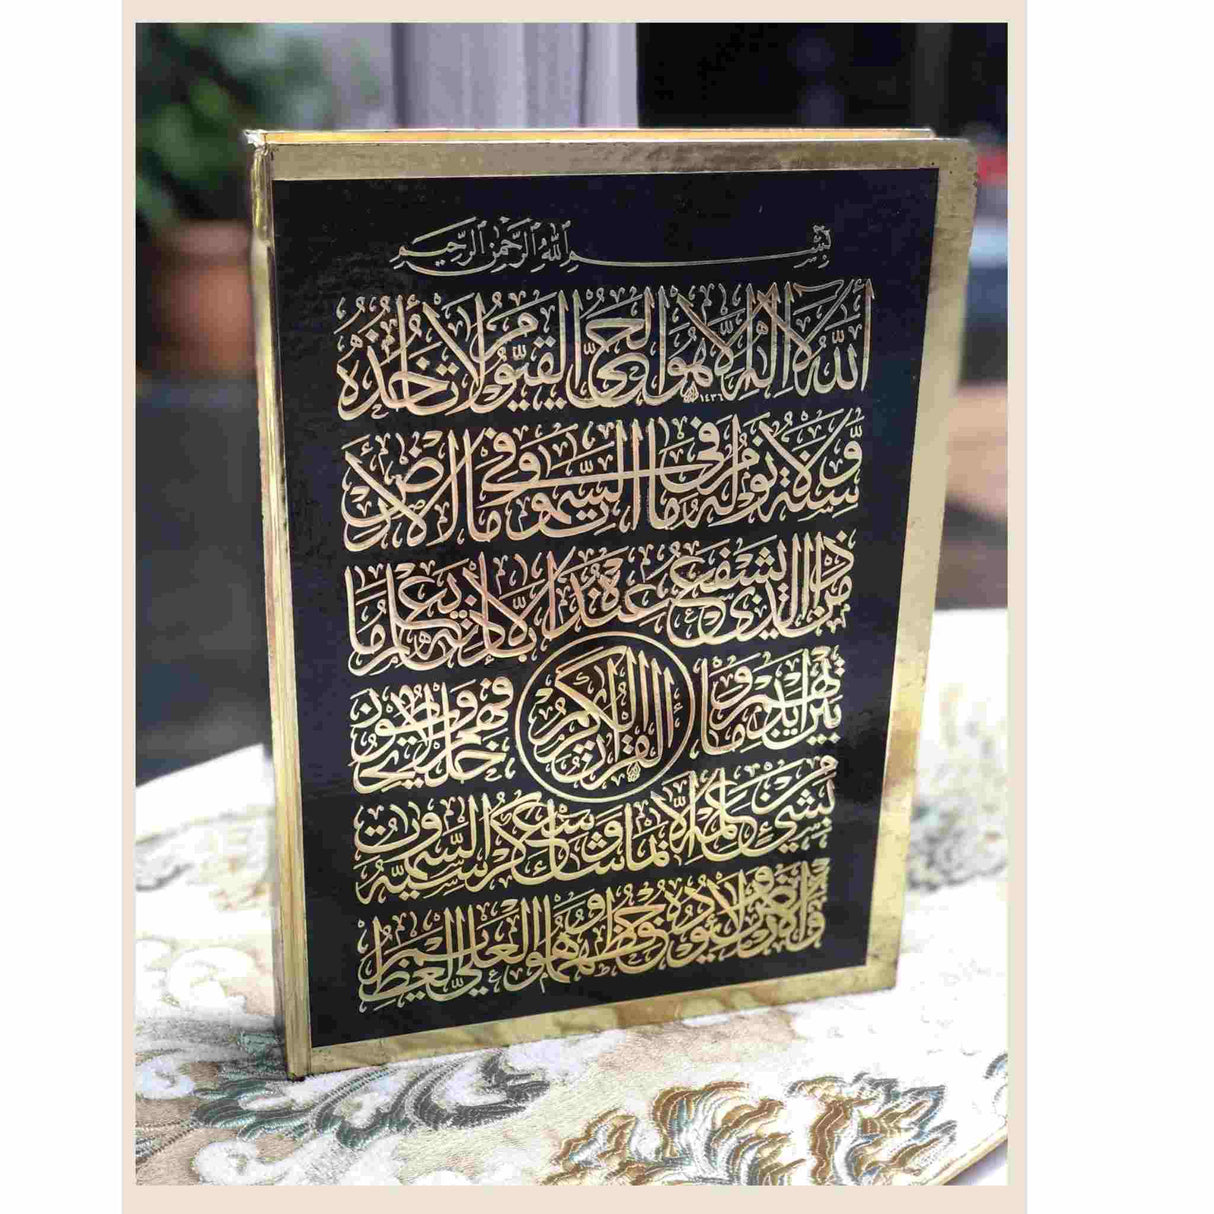 بِسْمِ اللَّهِ الرَّحْمَٰنِ الرَّحِيمِ
اللَّهُ لَا إِلَٰهَ إِلَّا هُوَ الْحَيُّ الْقَيُّومُ لَا تَأْخُذُهُ
١٤٣٦
سِنَةٌ وَلَا نَوْمٌ لَهُ مَا فِي السَّمَوَاتِ وَمَا فِي الْأَرْضِ
مَنْ ذَا الَّذِي يَشْفَعُ عِنْدَهُ إِلَّا بِإِذْنِهِ يَعْلَمُ مَا
بَيْنَ أَيْدِيهِمْ وَمَا خَلْفَهُمْ وَلَا يُحِيطُونَ
القرآن الكريم
بِشَيْءٍ مِنْ عِلْمِهِ إِلَّا بِمَا شَاءَ وَسِعَ كُرْسِيُّهُ السَّمَوَاتِ
وَالْأَرْضَ وَلَا يَئُودُهُ حِفْظُهُمَا وَهُوَ الْعَلِيُّ الْعَظِيمُ